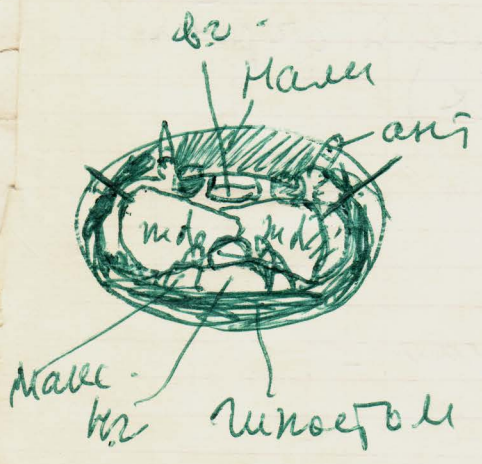 вг.
Нали
ант
mdg mdg
макс.
нг
гипостом